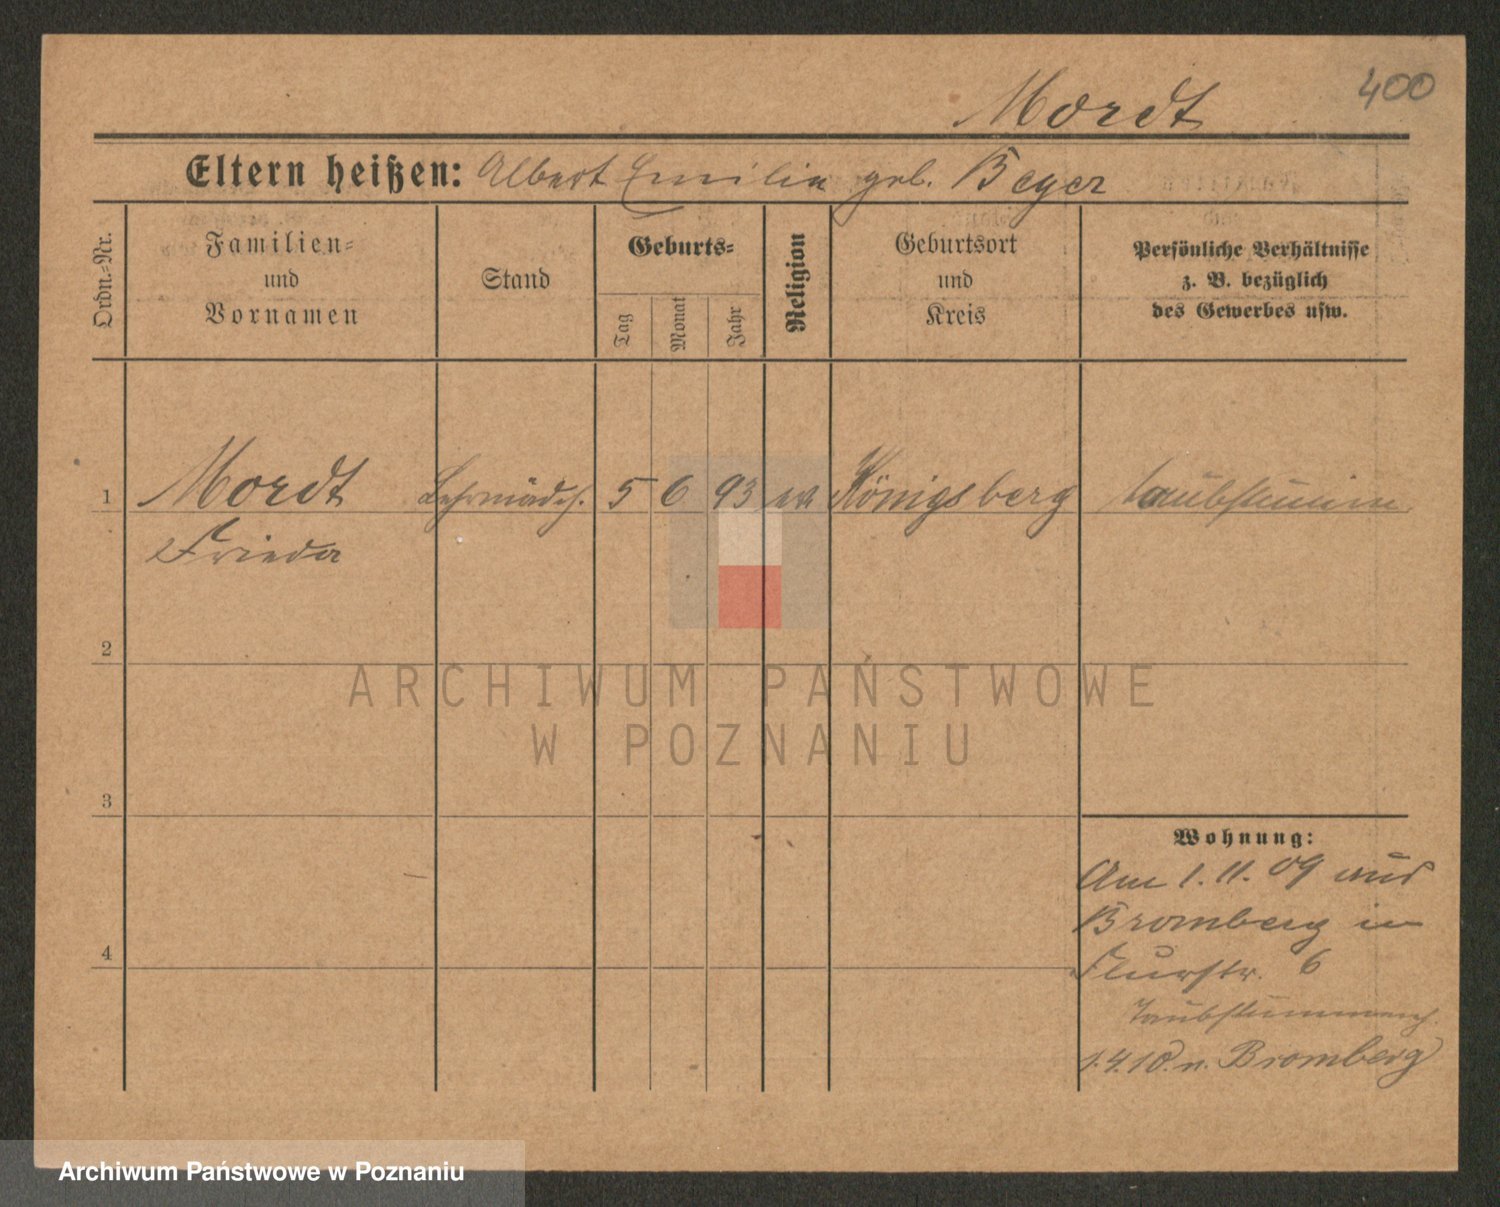 400
Mordt
Eltern heißen: Albert Emilie geb. Beyer
Ordn.=Nr.
Familien=
und
Vornamen
Stand
Geburts=
Tag
Monat
Jahr
Religion
Geburtsort
und
Kreis
Persönliche Verhältnisse
z. B. bezüglich
des Gewerbes usw.
1 Mordt Lehrmädch. 5 6 93 ev. Königsberg taubstumm
Frieda
2
3
4
Wohnung:
Am 1.11.09 aus
Bromberg in
Flurstr. 6
1.4.10. n. Bromberg
ARCHIWUM PAŃSTWOWE
W POZNANIU
Archiwum Państwowe w Poznaniu